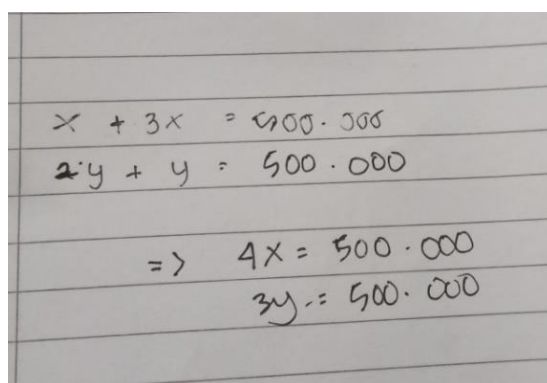 x + 3x = 500.000
2y + y = 500.000
=> 4x = 500.000
3y = 500.000